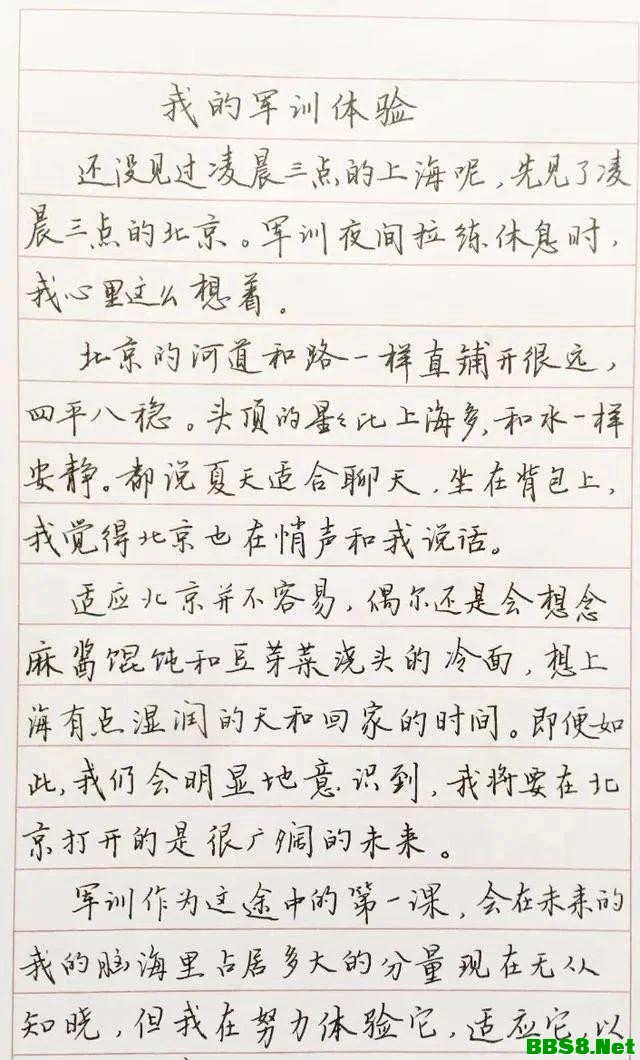 我的军训体验
还没见过凌晨三点的上海呢，先见了凌
晨三点的北京。军训夜间拉练休息时，
我心里这么想着。
北京的河道和路一样直铺开很远，
四平八稳。头顶的星比上海多，和水一样
安静。都说夏天适合聊天，坐在背包上，
我觉得北京也在悄声和我说话。
适应北京并不容易，偶尔还是会想念
麻酱馄饨和豆芽菜浇头的冷面，想上
海有点湿润的天和回家的时间。即便如
此，我们会明显地意识到，我将要在北
京打开的是很广阔的未来。
军训作为这途中的第一课，会在未来的
我的脑海里占居多大的分量现在无从
知晓，但我在努力体验它，适应它，以
BBS8.Net